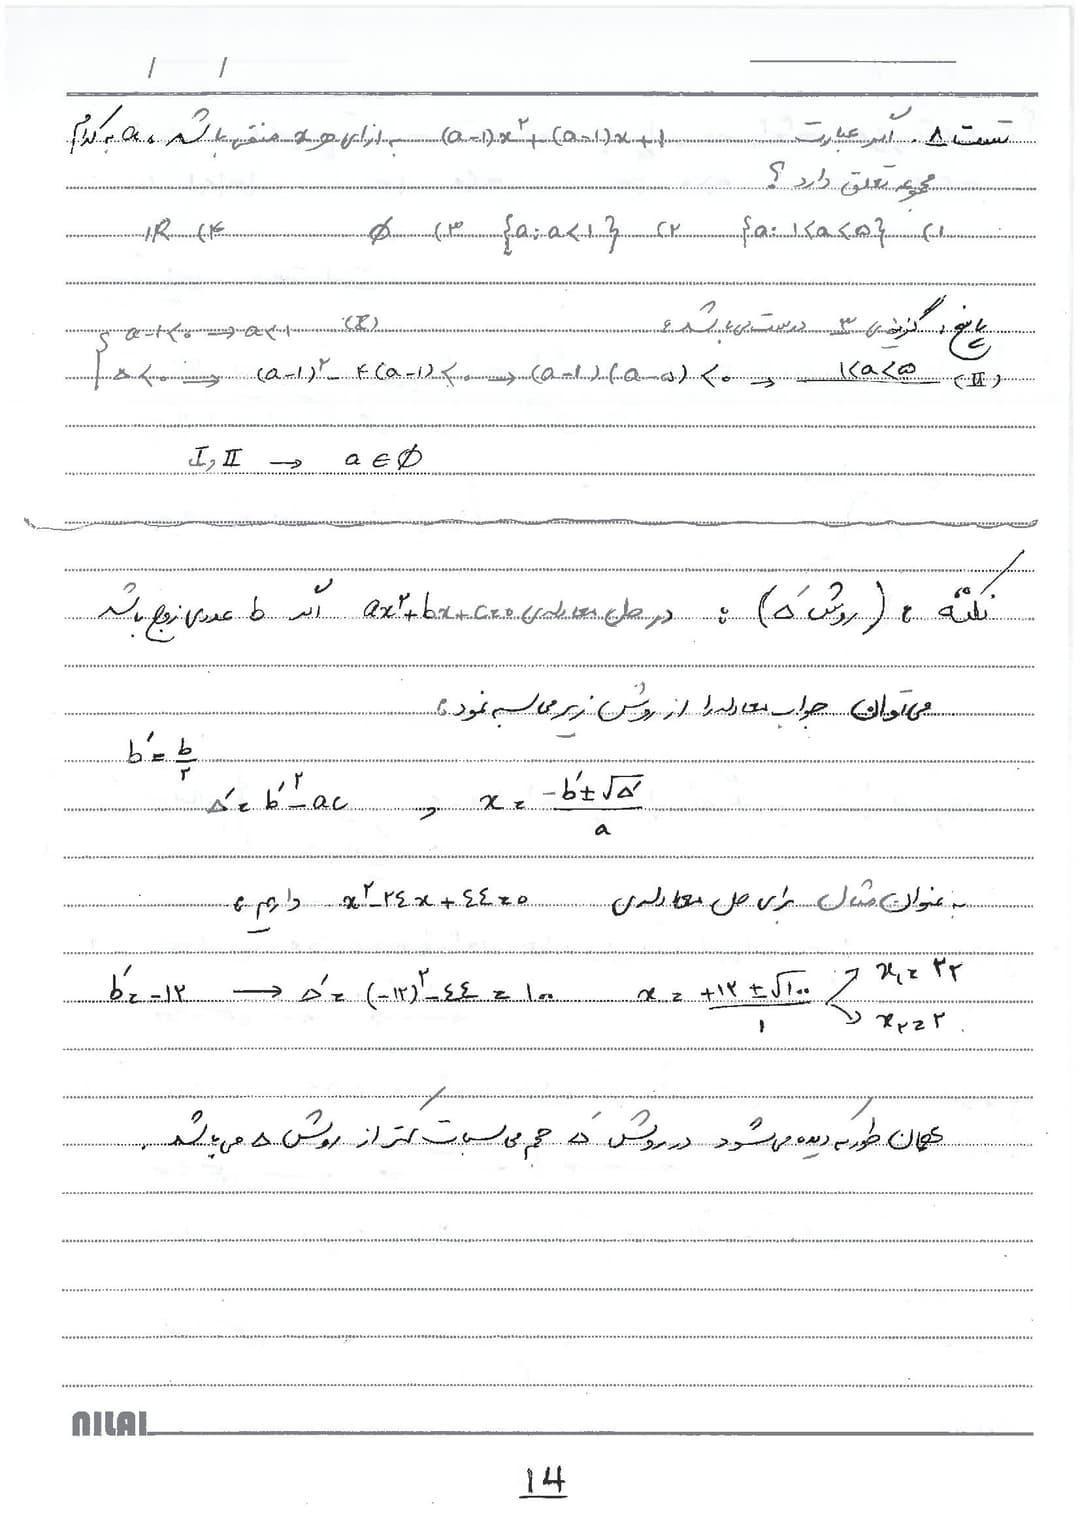 تست ۸. اگر عبارت (a-1)x²+(a-1)x+1 به ازای هر x منفی باشد، a به کدام
مجموعه تعلق دارد؟
۱) {a: 1<a<۵} ۲) {a: a<1} ۳) ∅ ۴) IR
پاسخ: گزینه‌ی ۳ درست می‌باشد:
{ a-1<۰ → a<1 (I)
Δ<۰ → (a-1)² - ۴(a-1)<۰ → (a-1)(a-۵)<۰ → 1<a<۵ (II)
I, II → a∈∅
نکته: (روش Δ′): در حل معادله‌ی ax²+bx+c=۰ اگر b عددی زوج باشد
می‌توان جواب معادله را از روش زیر محاسبه نمود:
b′=b/۲
Δ′=b′²-ac , x=(-b′±√Δ′)/a
به عنوان مثال برای حل معادله‌ی x²-۲٤x+٤٤=۰ داریم:
b′=-۱۲ → Δ′=(-۱۲)²-٤٤=۱۰۰ x=(+۱۲±√۱۰۰)/۱ x₁=۲۲
x₂=۲.
همان طور که دیده می‌شود در روش Δ′ حجم محاسبات کمتر از روش Δ می‌باشد.
NILAI
14